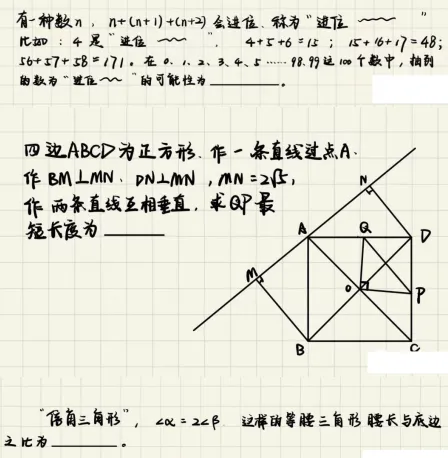 有一种数n, n+(n+1)+(n+2) 会进位. 称为"进位 〰"
比如: 4是"进位〰", 4+5+6=15; 15+16+17=48;
56+57+58=171. 在0、1、2、3、4、5……98.99这100个数中, 抽到
的数为"进位〰"的可能性为______。
四边ABCD为正方形. 作一条直线过点A.
作BM⊥MN、DN⊥MN, MN=2√5,
作两条直线互相垂直, 求QP最
短长度为______
N
A
Q
D
M
O
P
B
C
"倍角三角形", ∠α=2∠β 这样的等腰三角形腰长与底边
之比为______。